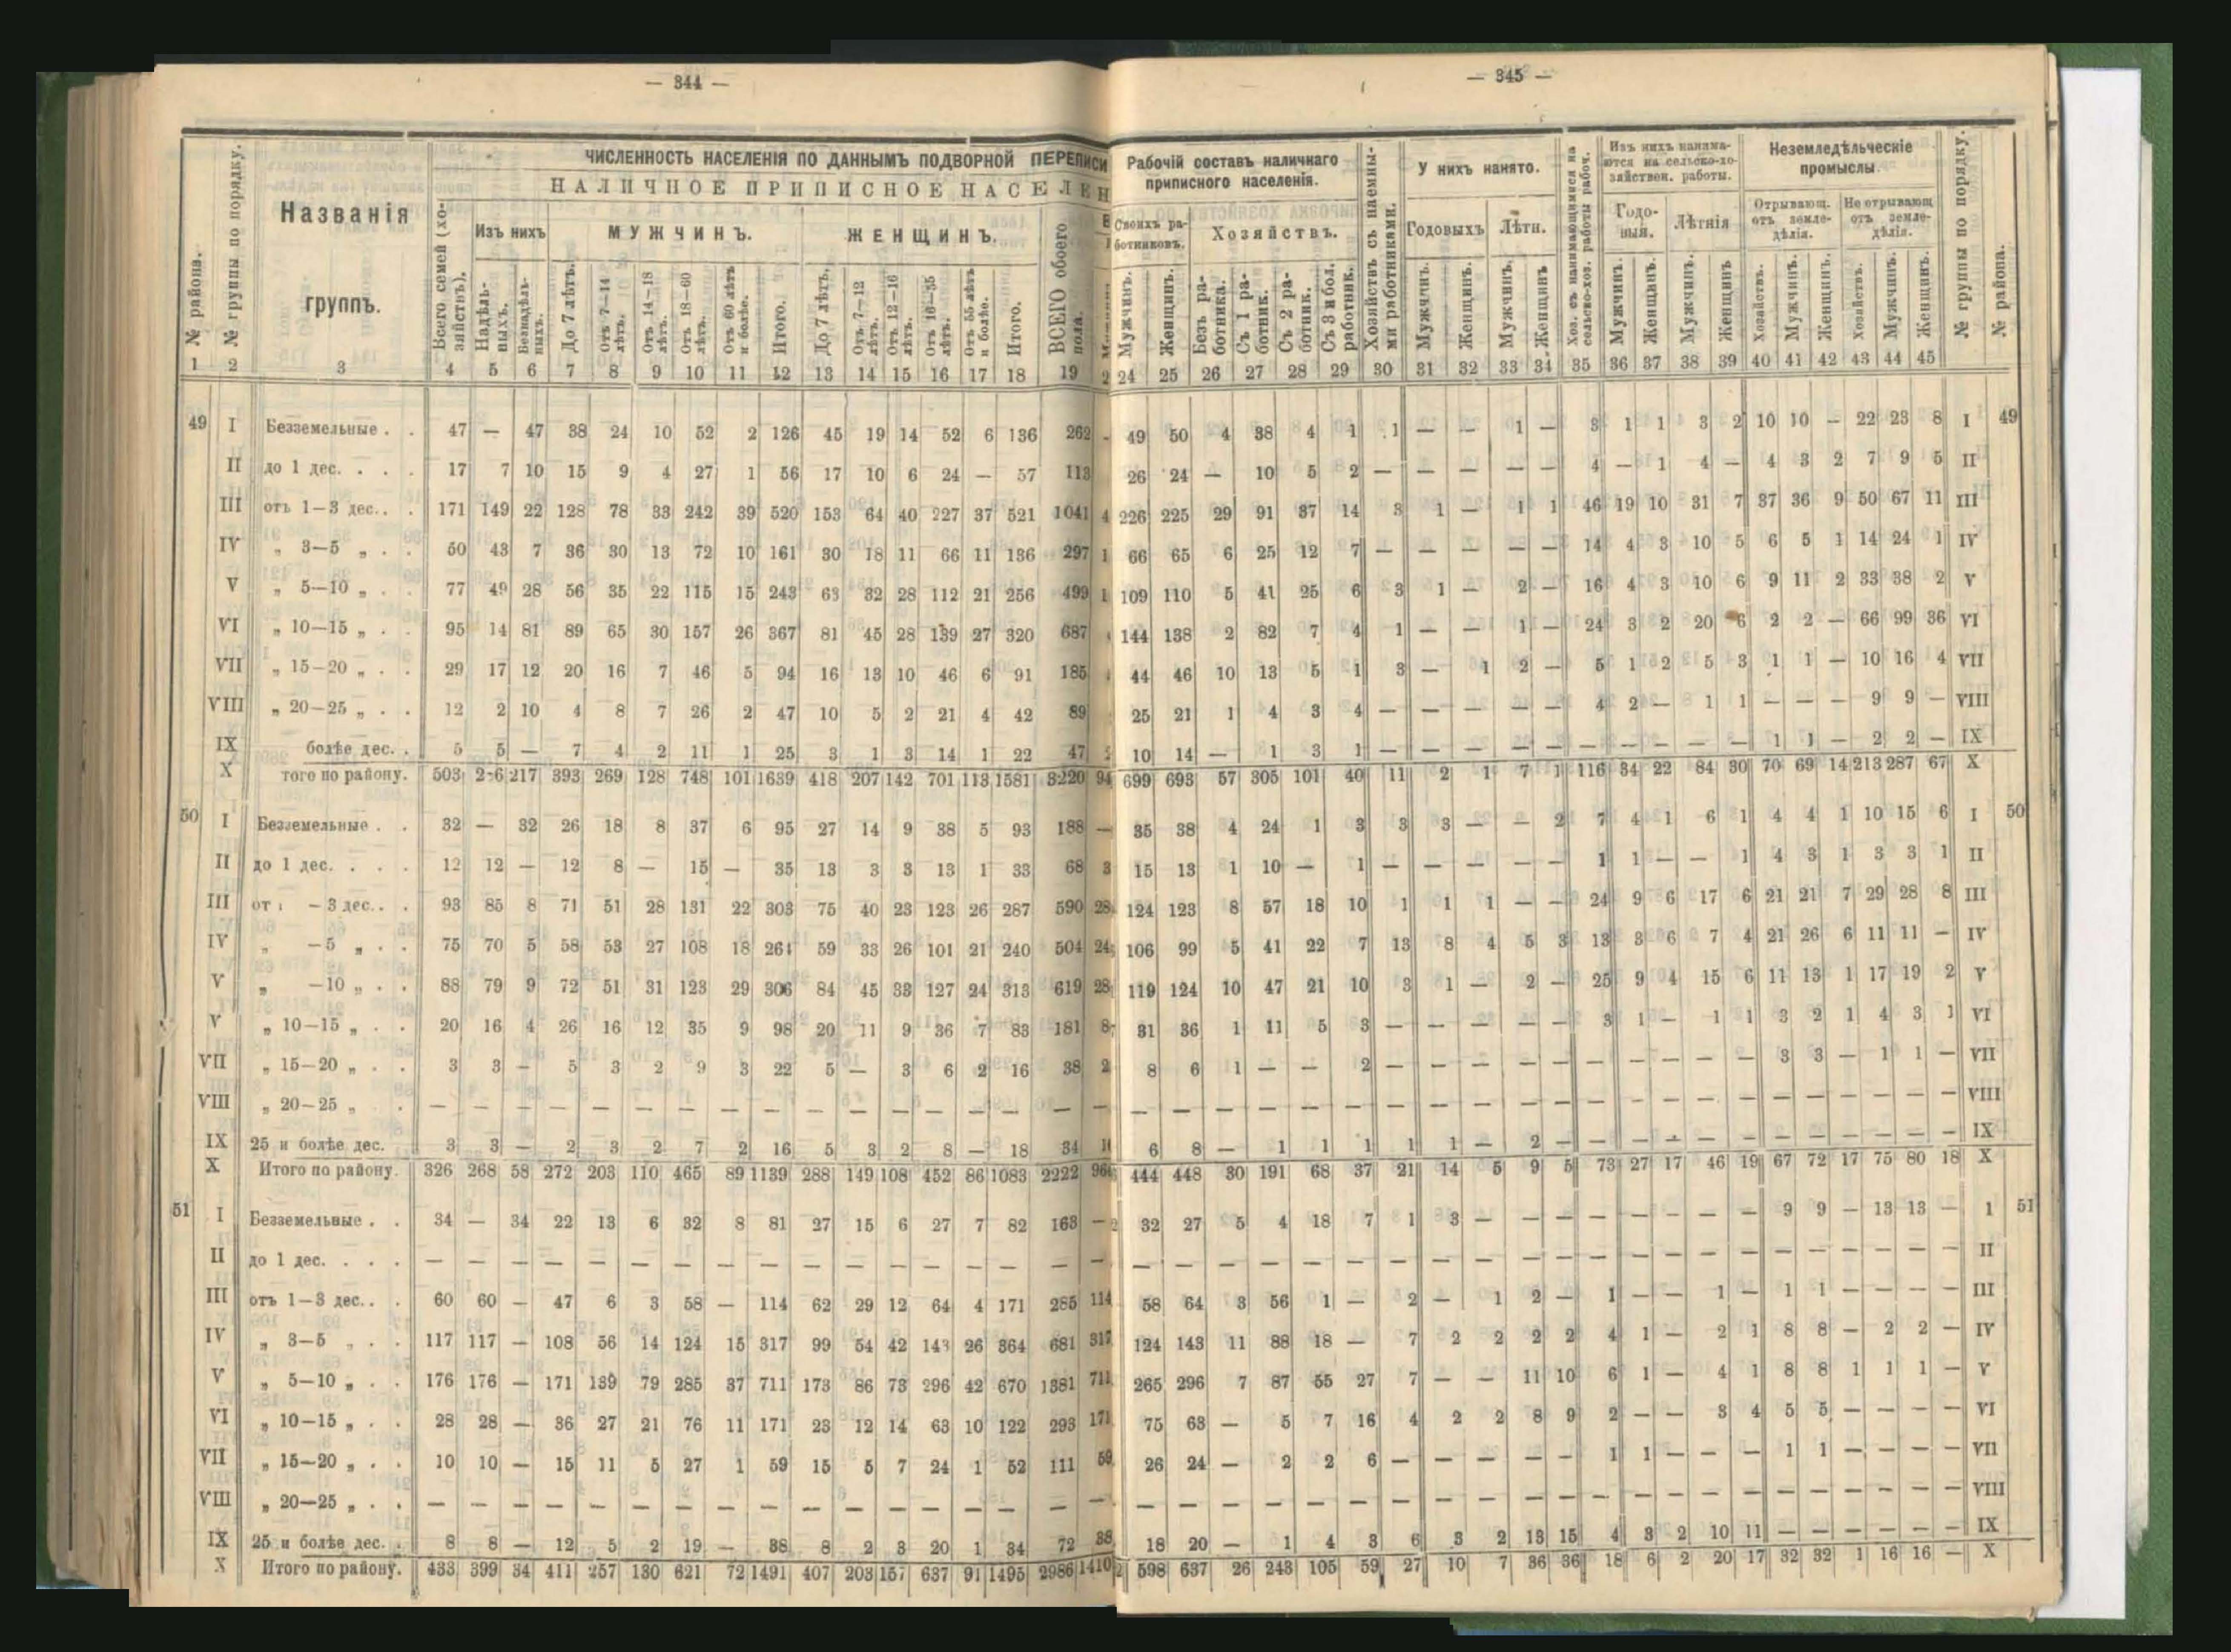 — 344 —
ЧИСЛЕННОСТЬ НАСЕЛЕНІЯ ПО ДАННЫМЪ ПОДВОРНОЙ ПЕРЕПИСИ
НАЛИЧНОЕ ПРИПИСНОЕ НАСЕЛЕН
№ района.
№ группы по порядку.
Названія
группъ.
Всего семей (хо-
зяйствъ).
Изъ нихъ
Надѣль-
ныхъ.
Безнадѣль-
ныхъ.
МУЖЧИНЪ.
До 7 лѣтъ.
Отъ 7—14
лѣтъ.
Отъ 14—18
лѣтъ.
Отъ 18—60
лѣтъ.
Отъ 60 лѣтъ
и болѣе.
Итого.
ЖЕНЩИНЪ.
До 7 лѣтъ.
Отъ 7—12
лѣтъ.
Отъ 12—16
лѣтъ.
Отъ 16—55
лѣтъ.
Отъ 55 лѣтъ
и болѣе.
Итого.
ВСЕГО обоего
пола.
1 2 3 4 5 6 7 8 9 10 11 12 13 14 15 16 17 18 19 2
49 I Безземельные . . 47 — 47 38 24 10 52 2 126 45 19 14 52 6 136 262 -
II до 1 дес. . . . 17 7 10 15 9 4 27 1 56 17 10 6 24 — 57 113
III отъ 1—3 дес. . . 171 149 22 128 78 33 242 39 520 153 64 40 227 37 521 1041 4
IV „ 3—5 „ . . 50 43 7 36 30 13 72 10 161 30 18 11 66 11 136 297 1
V „ 5—10 „ . . 77 49 28 56 35 22 115 15 243 63 32 28 112 21 256 499 1
VI „ 10—15 „ . . 95 14 81 89 65 30 157 26 367 81 45 28 139 27 320 687
VII „ 15—20 „ . . 29 17 12 20 16 7 46 5 94 16 13 10 46 6 91 185
VIII „ 20—25 „ . . 12 2 10 4 8 7 26 2 47 10 5 2 21 4 42 89
IX болѣе дес. . 5 5 — 7 4 2 11 1 25 3 1 3 14 1 22 47
X того по району. 503 2 6 217 393 269 128 748 101 1639 418 207 142 701 113 1581 3220 94
50 I Безземельные . . 32 — 32 26 18 8 37 6 95 27 14 9 38 5 93 188 —
II до 1 дес. . . . 12 12 — 12 8 — 15 — 35 13 3 3 13 1 33 68 3
III от — 3 дес. . . 93 85 8 71 51 28 131 22 303 75 40 23 123 26 287 590 28
IV „ —5 „ . . 75 70 5 58 53 27 108 18 264 59 33 26 101 21 240 504 24
V „ —10 „ . . 88 79 9 72 51 31 123 29 306 84 45 33 127 24 313 619 28
V „ 10—15 „ . . 20 16 4 26 16 12 35 9 98 20 11 9 36 7 83 181 8
VII „ 15—20 „ . . 3 3 — 5 3 2 9 3 22 5 — 3 6 2 16 38 2
VIII „ 20—25 „ . — — — — — — — — — — — — — — — —
IX 25 и болѣе дес. 3 3 — 2 3 2 7 2 16 5 3 2 8 — 18 34 1
X Итого по району. 326 268 58 272 203 110 465 89 1139 288 149 108 452 86 1083 2222 96
51 I Безземельные . . 34 — 34 22 13 6 32 8 81 27 15 6 27 7 82 163 —
II до 1 дес. . . . — — — — — — — — — — — — — — — — —
III отъ 1—3 дес. . . 60 60 — 47 6 3 58 — 114 62 29 12 64 4 171 285 114
IV „ 3—5 „ . . 117 117 — 108 56 14 124 15 317 99 54 42 143 26 364 681 317
V „ 5—10 „ . . 176 176 — 171 139 79 285 37 711 173 86 73 296 42 670 1381 711
VI „ 10—15 „ . . 28 28 — 36 27 21 76 11 171 23 12 14 63 10 122 293 171
VII „ 15—20 „ . . 10 10 — 15 11 5 27 1 59 15 5 7 24 1 52 111 59
VIII „ 20—25 „ . . — — — — — — — — — — — — — — — — —
IX 25 и болѣе дес. . 8 8 — 12 5 2 19 — 38 8 2 3 20 1 34 72 38
X Итого по району. 433 399 34 411 257 130 621 72 1491 407 203 157 637 91 1495 2986 1410
— 345 —
Рабочій составъ наличнаго
приписного населенія.
Своихъ ра-
ботниковъ.
Мужчинъ.
Женщинъ.
Хозяйствъ.
Безъ ра-
ботника.
Съ 1 ра-
ботник.
Съ 2 ра-
ботник.
Съ 3 и бол.
работник.
Хозяйствъ съ наемны-
ми работниками.
У нихъ нанято.
Годовыхъ
Мужчинъ.
Женщинъ.
Лѣтн.
Мужчинъ.
Женщинъ
Хоз. съ нанимающимися на
сельско-хоз. работы рабоч.
Изъ нихъ нанима-
ются на сельско-хо-
зяйствен. работы.
Годо-
выя.
Мужчинъ.
Женщинъ.
Лѣтнія
Мужчинъ.
Женщинъ
Неземледѣльческіе
промыслы.
Отрывающ.
отъ земле-
дѣлія.
Хозяйствъ.
Мужчинъ.
Женщинъ.
Не отрывающ
отъ земле-
дѣлія.
Хозяйствъ.
Мужчинъ.
Женщинъ.
№ группы по порядку.
№ района.
24 25 26 27 28 29 30 31 32 33 34 35 36 37 38 39 40 41 42 43 44 45
49 50 4 38 4 1 1 — — 1 — 3 1 1 3 2 10 10 — 22 23 8 I 49
26 24 — 10 5 2 — — — — — 4 — 1 4 — 4 3 2 7 9 5 II
226 225 29 91 37 14 3 1 — 1 1 46 19 10 31 7 37 36 9 50 67 11 III
66 65 6 25 12 7 — — — — — 14 4 3 10 5 6 5 1 14 24 1 IV
109 110 5 41 25 6 3 1 — 2 — 16 4 3 10 6 9 11 2 33 38 2 V
144 138 2 82 7 4 1 — — 1 — 24 3 2 20 6 2 2 — 66 99 36 VI
44 46 10 13 5 1 3 — 1 2 — 5 1 2 5 3 1 1 — 10 16 4 VII
25 21 1 4 3 4 — — — — — 4 2 — 1 1 — — — 9 9 — VIII
10 14 — 1 3 1 — — — — — — — — — — 1 1 — 2 2 — IX
699 693 57 305 101 40 11 2 1 7 1 116 34 22 84 30 70 69 14 213 287 67 X
35 38 4 24 1 3 3 3 — — 2 7 4 1 6 1 4 4 1 10 15 6 I 50
15 13 1 10 — 1 — — — — — 1 1 — — 1 4 3 1 3 3 1 II
124 123 8 57 18 10 1 1 1 — — 24 9 6 17 6 21 21 7 29 28 8 III
106 99 5 41 22 7 13 8 4 5 3 13 3 6 7 4 21 26 6 11 11 — IV
119 124 10 47 21 10 3 1 — 2 — 25 9 4 15 6 11 13 1 17 19 2 V
31 36 1 11 5 3 — — — — — 3 1 — 1 1 3 2 1 4 3 1 VI
8 6 1 — — 2 — — — — — — — — — — 3 3 — 1 1 — VII
— — — — — — — — — — — — — — — — — — — — — — VIII
6 8 — 1 1 1 1 1 — 2 — — — — — — — — — — — — IX
444 448 30 191 68 37 21 14 5 9 5 73 27 17 46 19 67 72 17 75 80 18 X
32 27 5 4 18 7 1 3 — — — — — — — — 9 9 — 13 13 — I 51
— — — — — — — — — — — — — — — — — — — — — — II
58 64 3 56 1 — 2 — 1 2 — 1 — — 1 — 1 1 — — — — III
124 143 11 88 18 — 7 2 2 2 2 4 1 — 2 1 8 8 — 2 2 — IV
265 296 7 87 55 27 7 — — 11 10 6 1 — 4 1 8 8 1 1 1 — V
75 63 — 5 7 16 4 2 2 8 9 2 — — 3 4 5 5 — — — — VI
26 24 — 2 2 6 — — — — — 1 1 — — — 1 1 — — — — VII
— — — — — — — — — — — — — — — — — — — — — — VIII
18 20 — 1 4 3 6 3 2 13 15 4 3 2 10 11 — — — — — — IX
598 637 26 243 105 59 27 10 7 36 36 18 6 2 20 17 32 32 1 16 16 — X